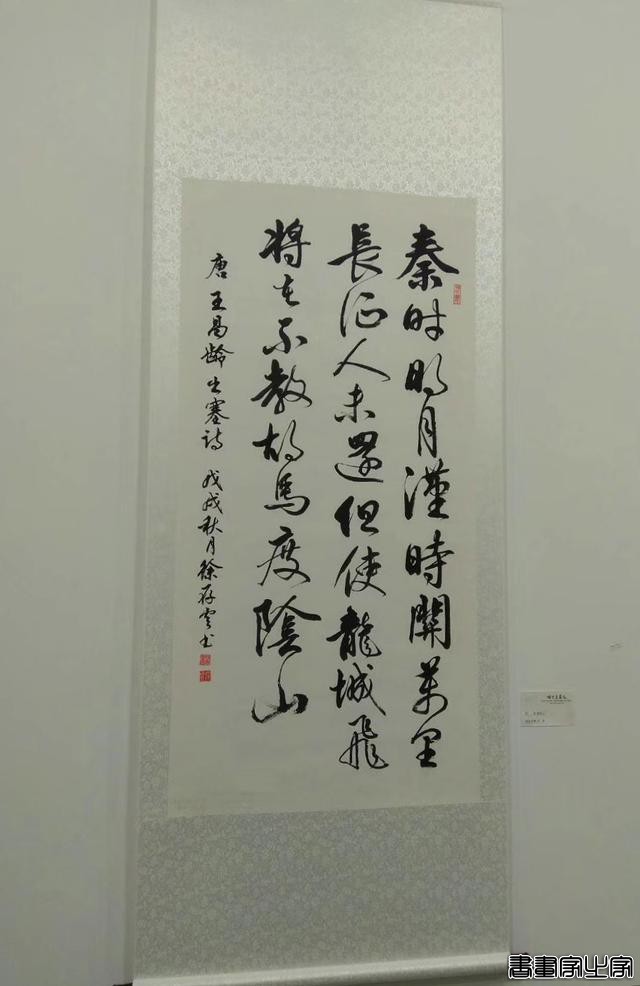 秦时明月漢時關萬里
長征人未還但使龍城飛
將在不教胡馬度陰山
唐 王昌齡出塞詩 戊戌秋月徐存雲书
書畫家之家